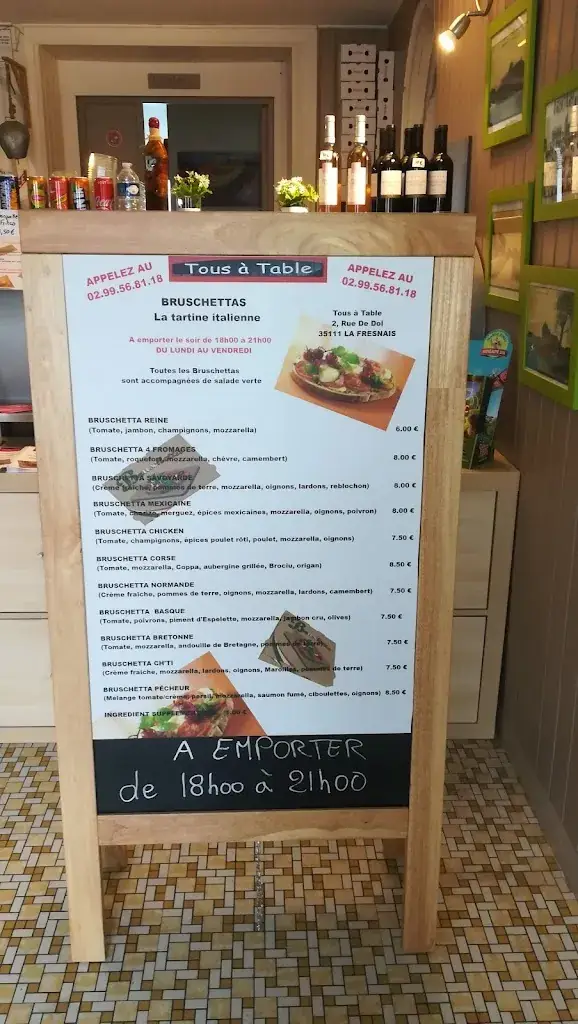 APPELEZ AU
02.99.56.81.18
Tous à Table
APPELEZ AU
02.99.56.81.18
BRUSCHETTAS
La tartine italienne
Tous à Table
2, Rue De Dol
35111 LA FRESNAIS
A emporter le soir de 18h00 à 21h00
DU LUNDI AU VENDREDI
Toutes les Bruschettas
sont accompagnées de salade verte
BRUSCHETTA REINE
(Tomate, jambon, champignons, mozzarella) 6.00 €
BRUSCHETTA 4 FROMAGES
(Tomate, roquefort, mozzarella, chèvre, camembert) 8.00 €
BRUSCHETTA SAVOYARDE
(Crème fraiche, pommes de terre, mozzarella, oignons, lardons, reblochon) 8.00 €
BRUSCHETTA MEXICAINE
(Tomate, chorizo, merguez, épices mexicaines, mozzarella, oignons, poivron) 8.00 €
BRUSCHETTA CHICKEN
(Tomate, champignons, épices poulet rôti, poulet, mozzarella, oignons) 7.50 €
BRUSCHETTA CORSE
(Tomate, mozzarella, Coppa, aubergine grillée, Brociu, origan) 8.50 €
BRUSCHETTA NORMANDE
(Crème fraiche, pommes de terre, oignons, mozzarella, lardons, camembert) 7.50 €
BRUSCHETTA BASQUE
(Tomate, poivrons, piment d'Espelette, mozzarella, jambon cru, olives) 7.50 €
BRUSCHETTA BRETONNE
(Tomate, mozzarella, andouille de Bretagne, pommes de terre) 7.50 €
BRUSCHETTA CH'TI
(Crème fraiche, mozzarella, lardons, oignons, Maroilles, pommes de terre) 7.50 €
BRUSCHETTA PÊCHEUR
(Mélange tomate/crème, persil, mozzarella, saumon fumé, ciboulettes, oignons) 8.50 €
INGREDIENT 1.00 €
A EMPORTER
de 18h00 à 21h00